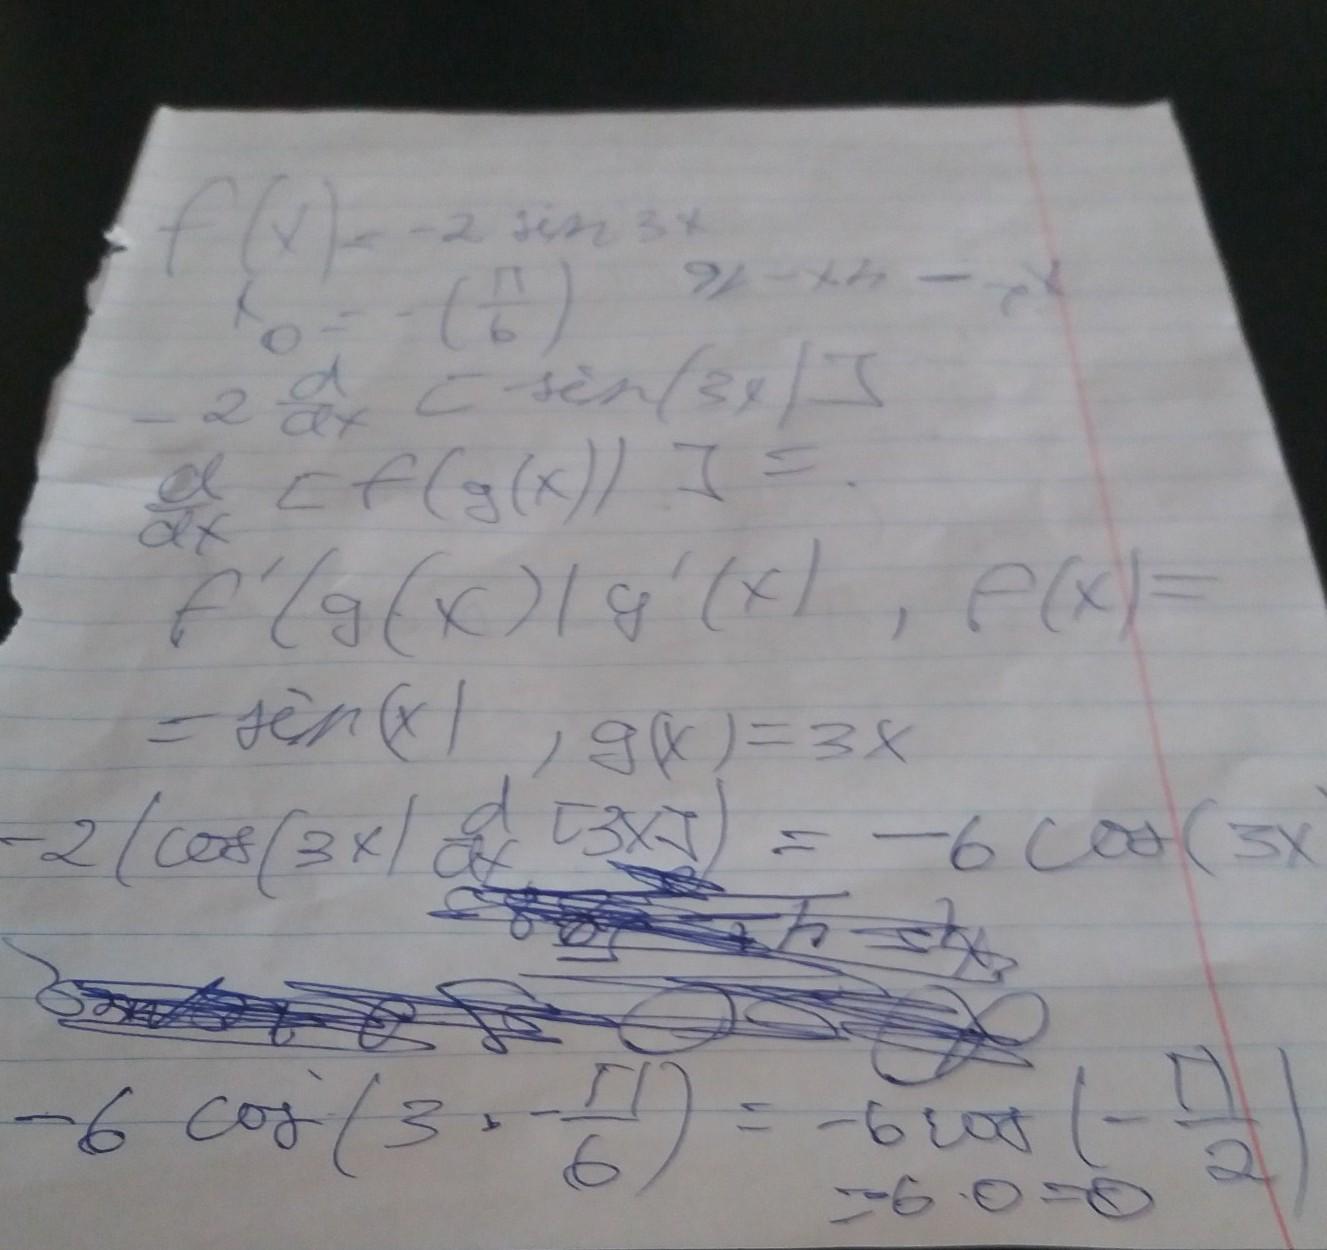 f(x) = -2 sin 3x
x₀ = -(π/6)
-2 d/dx [ sin(3x) ]
d/dx [ f(g(x)) ] =
f'(g(x)) g'(x) , f(x) =
= sin(x) , g(x) = 3x
-2 (cos(3x) d/dx [3x]) = -6 cos(3x
-6 cos (3 · -π/6) = -6 cos (-π/2)
= 6 · 0 = 0